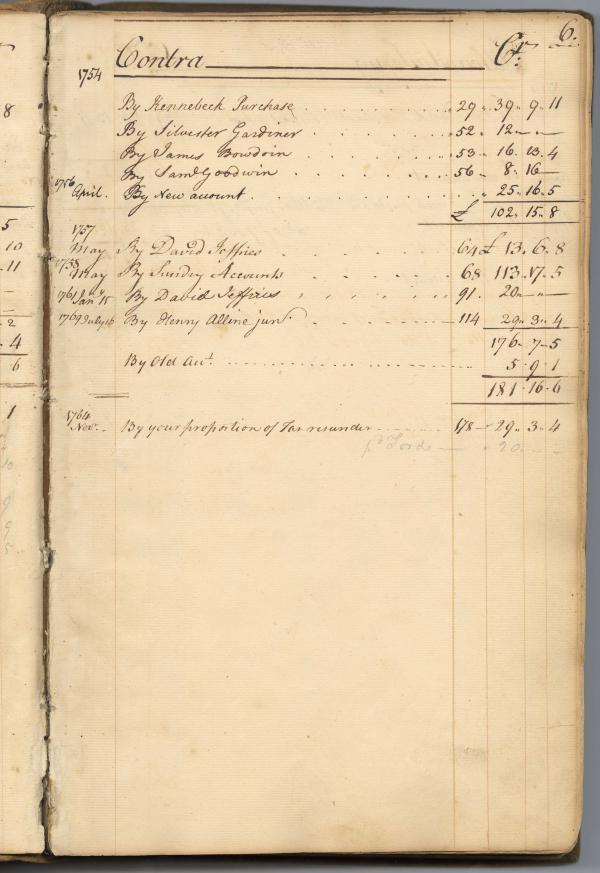 6.
1754 Contra Cr.
By Kennebeck Purchase 29 39 9 11
By Silvester Gardiner 52 12 — —
By James Bowdoin 53 16 13 4
By Saml Goodwin 56 8 16 —
1756 April. By New account 25 16 5
£ 102 15 8
1757
May By David Jeffries 64 £ 13 6 8
1758 May By Sundry Accounts 68 113 17 5
1761 Jany 15 By David Jeffries 91 20 — —
July 16 By Henry Alline junr 114 29 3 4
176 7 5
By Old Acct. 5 9 1
181 16 6
1764
Novr. By your proportion of Tax 178 29 3 4
20